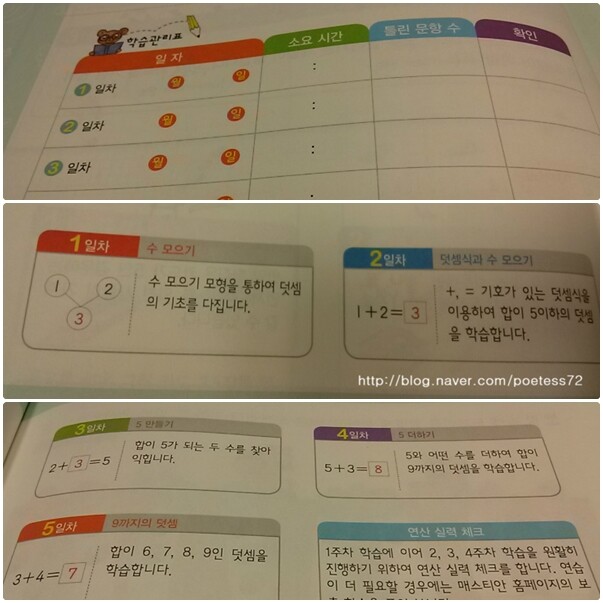 학습관리표
일 자
소요 시간
틀린 문항 수
확인
1 일차 월 일 :
2 일차 월 일 :
3 일차 월 일 :
1일차 수 모으기
1 2
3
수 모으기 모형을 통하여 덧셈
의 기초를 다집니다.
2일차 덧셈식과 수 모으기
1+2=3
+, = 기호가 있는 덧셈식을
이용하여 합이 5이하의 덧셈
을 학습합니다.
http://blog.naver.com/poetess72
3일차 5 만들기
2+3=5
합이 5가 되는 두 수를 찾아
익힙니다.
4일차 5 더하기
5+3=8
5와 어떤 수를 더하여 합이
9까지의 덧셈을 학습합니다.
5일차 9까지의 덧셈
3+4=7
합이 6, 7, 8, 9인 덧셈을
학습합니다.
연산 실력 체크
1주차 학습에 이어 2, 3, 4주차 학습을 원활히
진행하기 위하여 연산 실력 체크를 합니다. 연습
이 더 필요할 경우에는 매스티안 홈페이지의 보